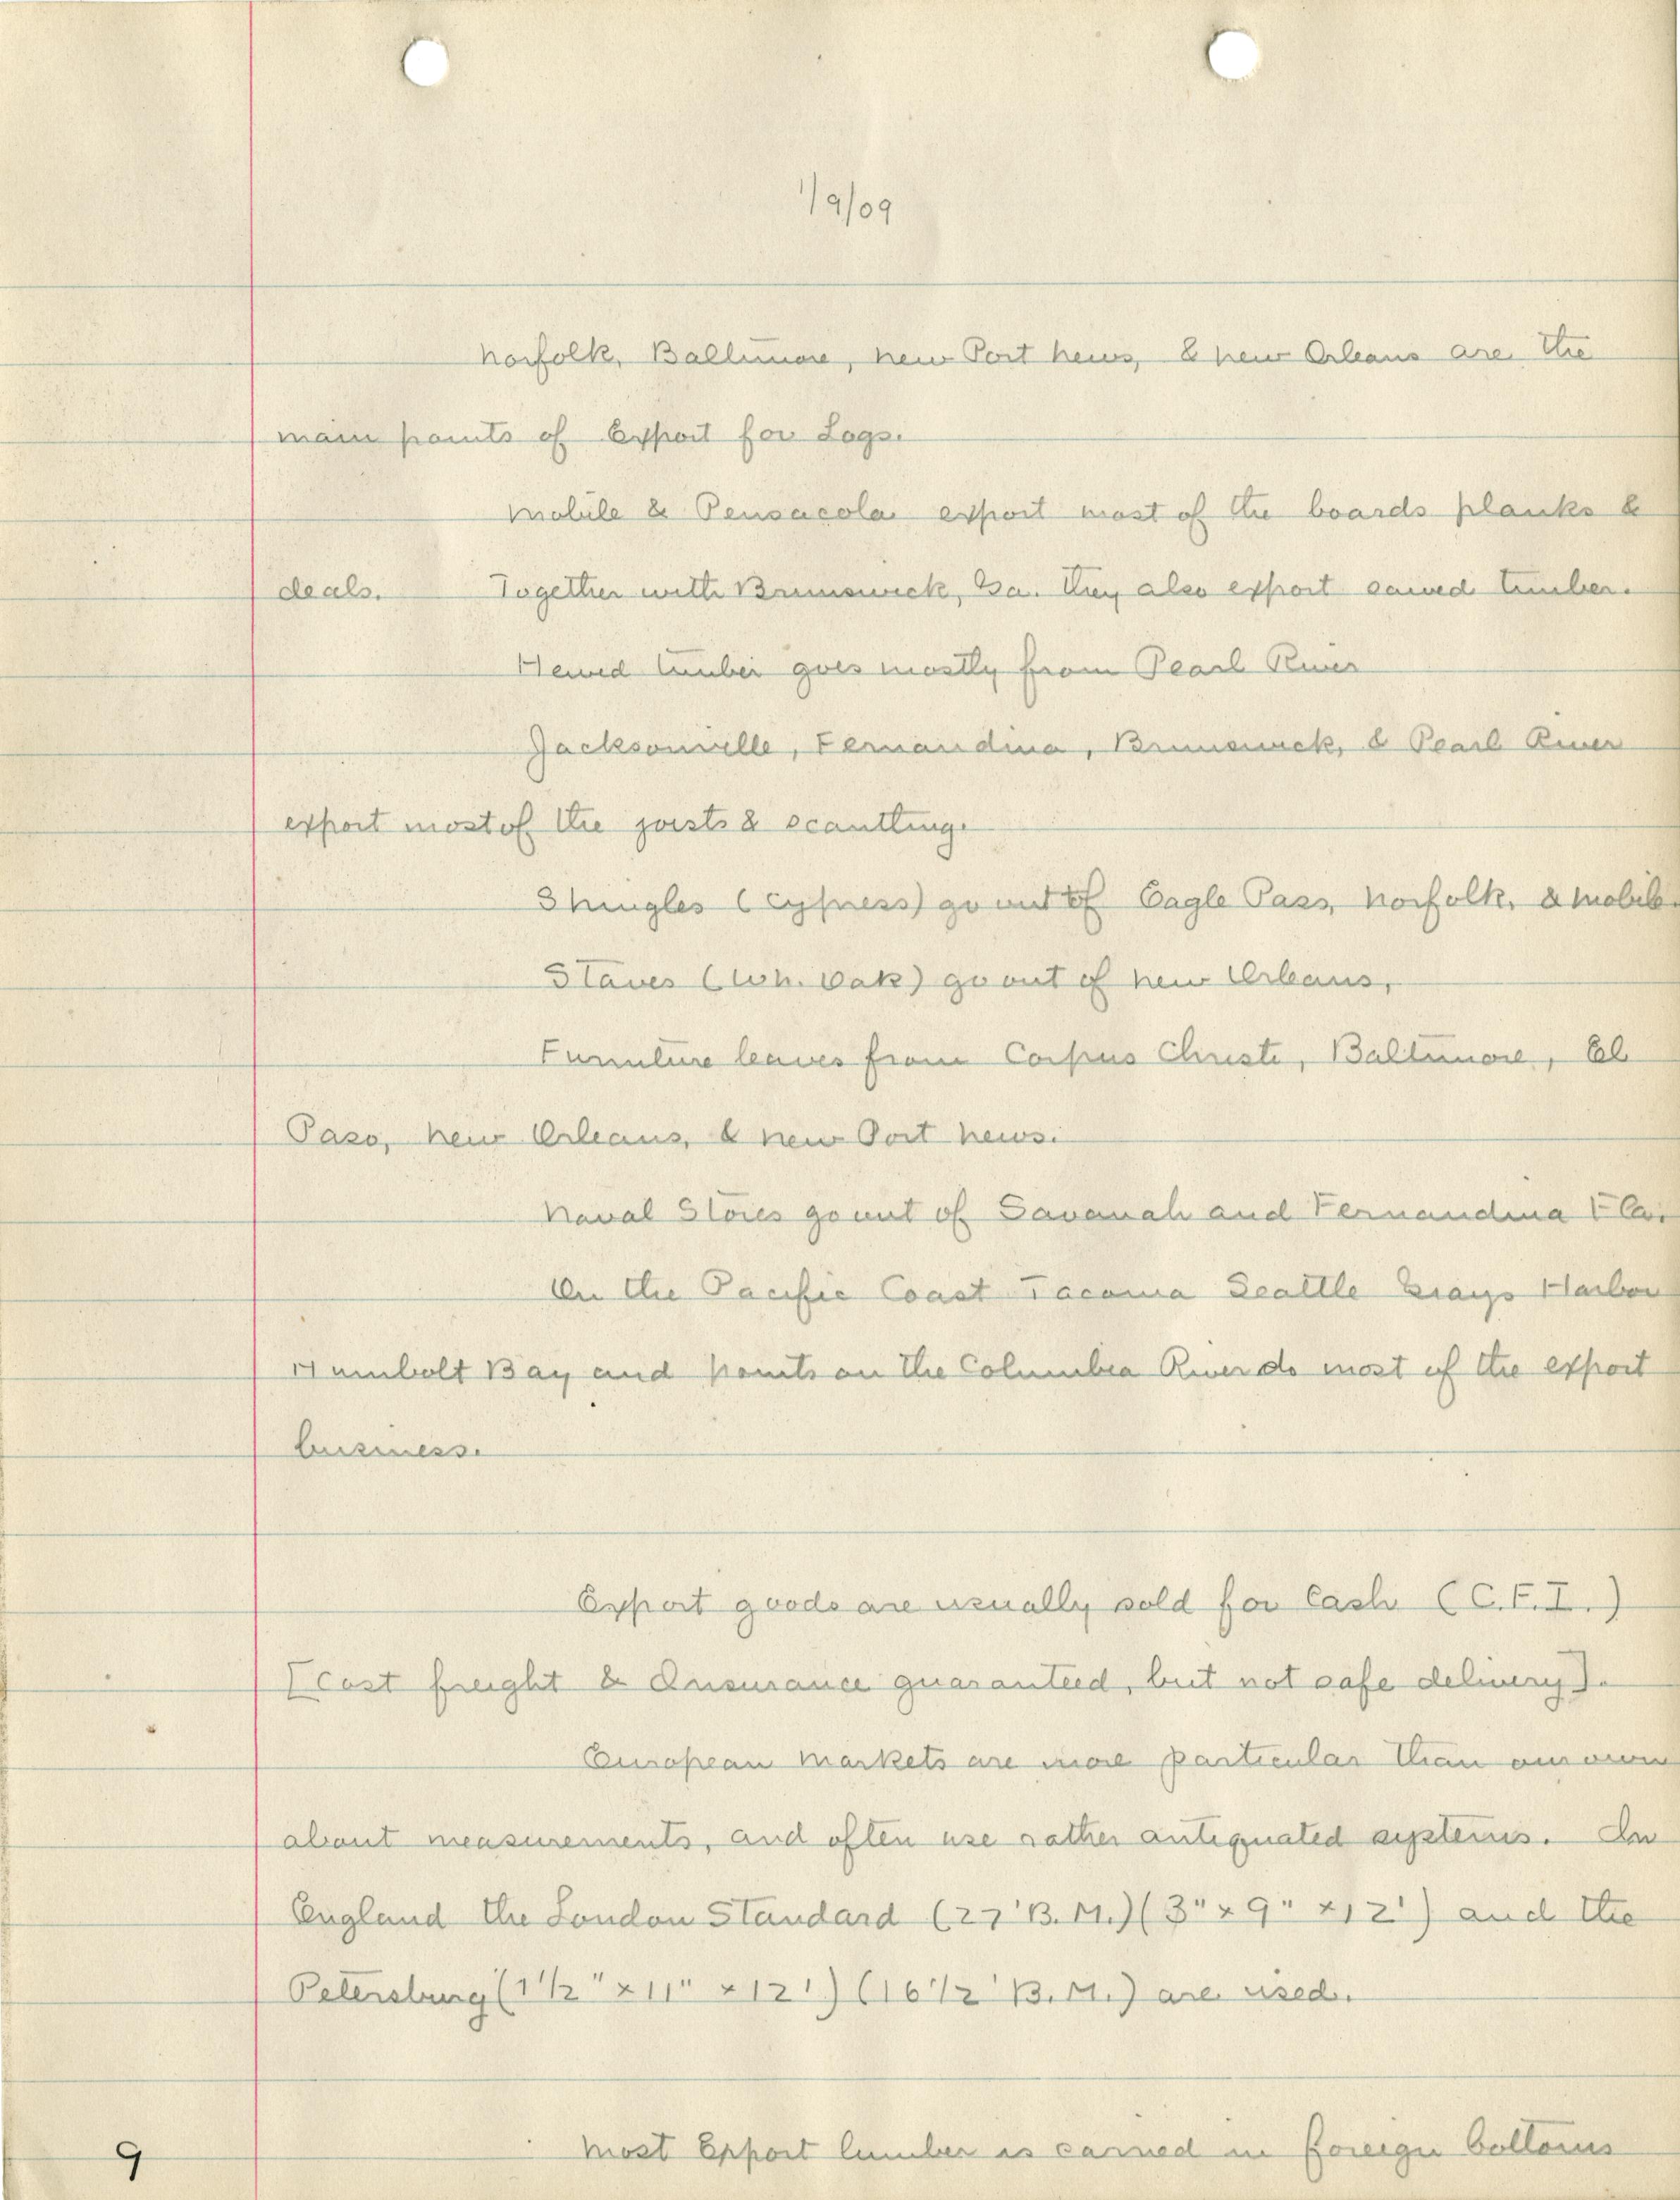 1/9/09
Norfolk, Baltimore, New Port News, & New Orleans are the
main points of Export for Logs.
Mobile & Pensacola export most of the boards planks &
deals. Together with Brunswick, Ga. they also export sawed timber.
Hewed timber goes mostly from Pearl River
Jacksonville, Fernandina, Brunswick, & Pearl River
export most of the joists & scantling.
Shingles (Cypress) go out of Eagle Pass, Norfolk, & Mobile.
Staves (Wh. Oak) go out of New Orleans,
Furniture leaves from Corpus Christi, Baltimore, El
Paso, New Orleans, & New Port News.
Naval Stores go out of Savanah and Fernandina Fla.
On the Pacific Coast Tacoma Seattle Grays Harbor
Humbolt Bay and points on the Columbia River do most of the export
business.
Export goods are usually sold for Cash (C.F.I.)
[Cost freight & Insurance guaranteed, but not safe delivery].
European Markets are more particular than our own
about measurements, and often use rather antiquated systems. In
England the London Standard (27' B.M.) (3" x 9" x 12') and the
Petersburg (1 1/2" x 11" x 12') (16 1/2' B.M.) are used.
Most Export lumber is carried in foreign bottoms
9